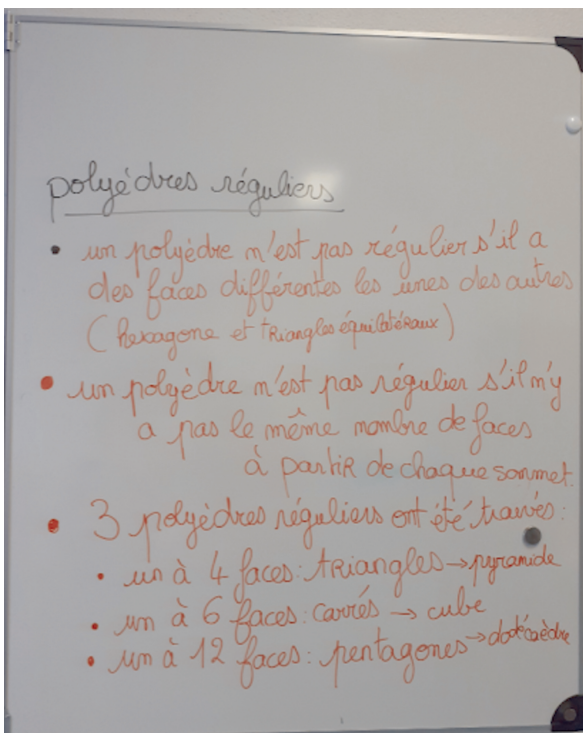 polyédres réguliers
• un polyèdre n'est pas régulier s'il a
des faces différentes les unes des autres
(hexagone et triangles équilatéraux)
• un polyèdre n'est pas régulier s'il n'y
a pas le même nombre de faces
à partir de chaque sommet.
• 3 polyèdres réguliers ont été trouvés:
• un à 4 faces: triangles → pyramide
• un à 6 faces: carrés → cube
• un à 12 faces: pentagones → dodécaèdre